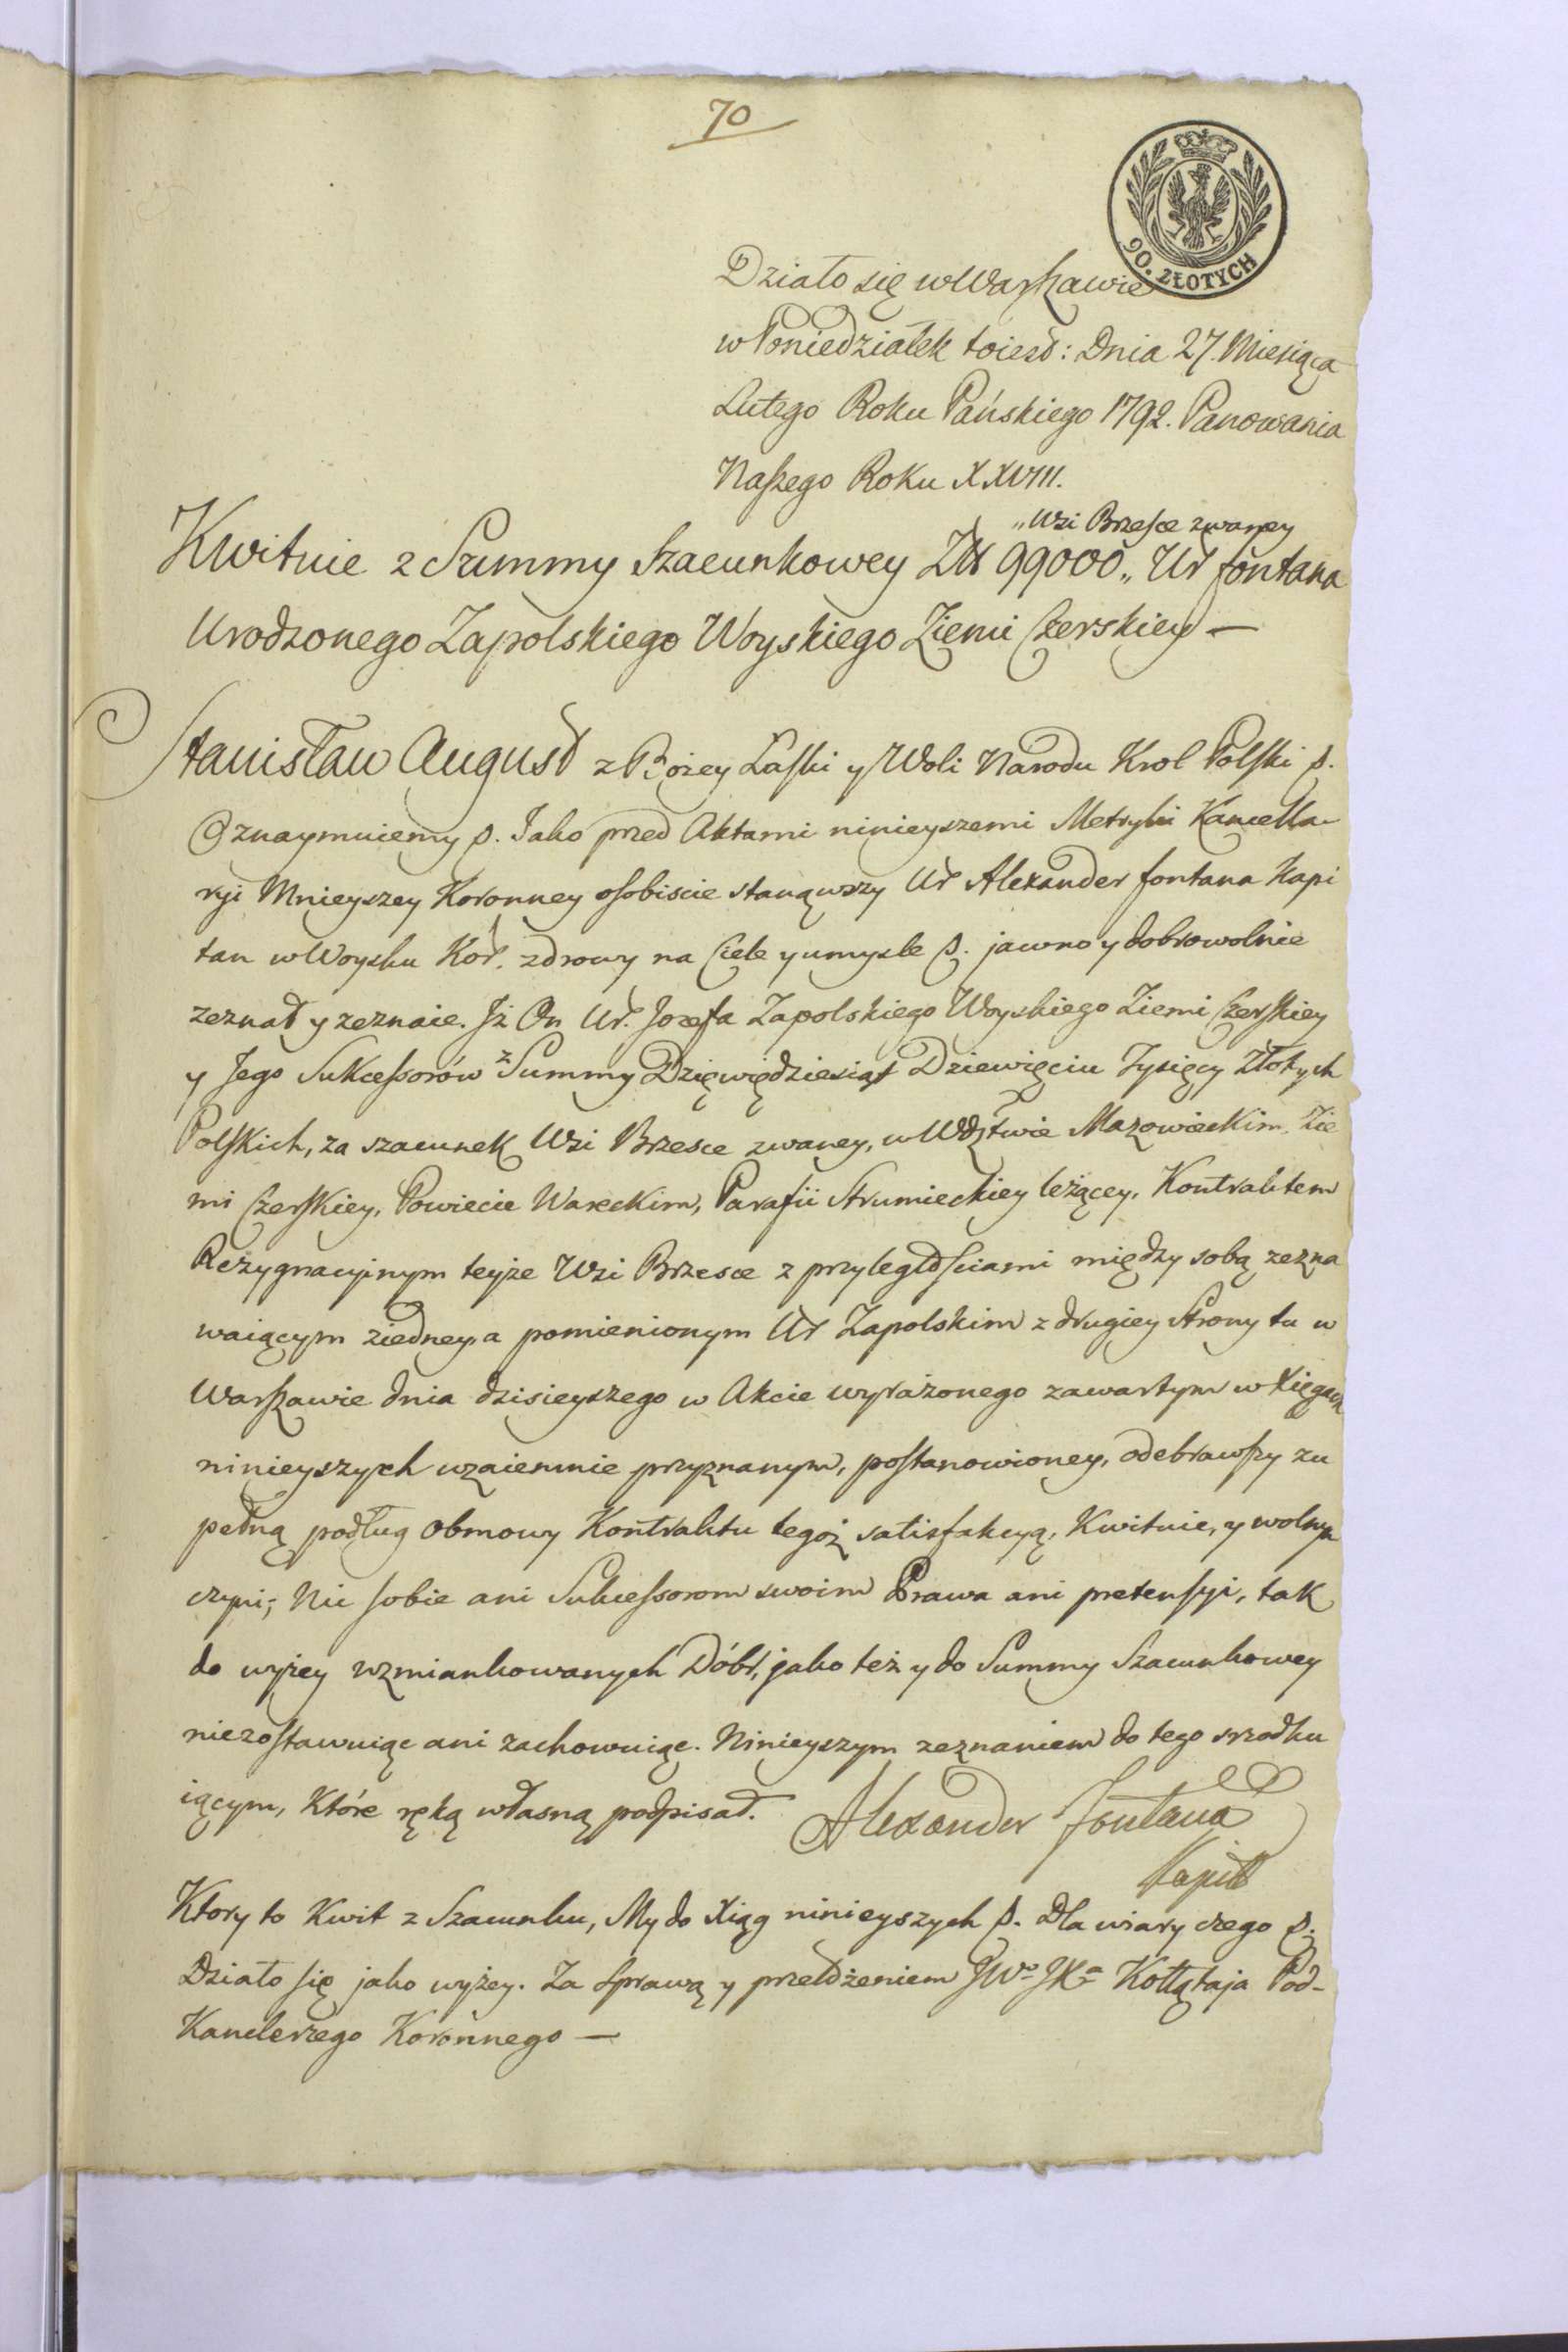 70
90. ZŁOTYCH
Działo się w Warszawie
w Poniedziałek toiest: Dnia 27. Miesiąca
Lutego Roku Pańskiego 1792. Panowania
Naszego Roku XXVIII.
„Wsi Brzesce zwaney
Kwituie z Summy Szacunkowey Zł 99000„ Ur fontana
Urodzonego Zapolskiego Woyskiego Ziemi Czerskiey —
Stanisław August z Bożey Łaski y Woli Narodu Krol Polski p.
Oznaymuiemy p. Jako przed Aktami ninieyszemi Metryki Kancella-
ryi Mnieyszey Koronney osobiscie stanąwszy Ur Alexander fontana Kapi
tan w Woysku Kor. zdrowy na Ciele y umysle p. jawno y dobrowolnie
zeznał y zeznaie. Jż On Ur. Jozefa Zapolskiego Woyskiego Ziemi Czerskiey
y Jego Sukcessorów z Summy Dziewiędziesiąt Dziewięciu Tysięcy Złotych
Polskich, za szacunek Wsi Brzesce zwaney, w Wdztwie Mazowieckim, Zie
mi Czerskiey, Powiecie Wareckim, Parafii Strumieckiey leżącey, Kontraktem
Rezygnacyinym teyże Wsi Brzesce z przyległościami między sobą zezna
waiącym ziedney, a pomienionym Ur Zapolskim z drugiey Strony tu w
Warszawie dnia dzisieyszego w Akcie wyrażonego zawartym w Xięgach
ninieyszych wzaiemnie przyznanym, postanowioney, odebrawszy zu
pełną podług obmowy Kontraktu tegoż satisfakcyą, Kwituie, y wolnym
czyni; Nic sobie ani Sukcessorom swoim Prawa ani pretensyi, tak
do wyżey wzmiankowanych Dóbr, jako też y do Summy Szacunkowey
niezostawuiąc ani zachowuiąc. Ninieyszym zeznaniem do tego srzodku
iącym, Które ręką własną podpisał. Alexander Fontana
Kapit
Ktory to Kwit z Szacunku, My do Xiąg ninieyszych p. Dla wiary czego p.
Działo się jako wyżey. Za sprawą y przełożeniem JWo JXa Kołłątaja Pod-
Kanclerzego Koronnego —